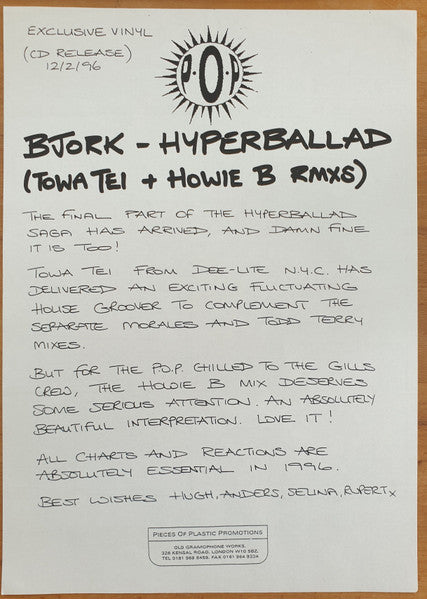 EXCLUSIVE VINYL
(CD RELEASE)
12/2/96
P·O·P
BJORK - HYPERBALLAD
(TOWA TEI + HOWIE B RMXS)
THE FINAL PART OF THE HYPERBALLAD
SAGA HAS ARRIVED, AND DAMN FINE
IT IS TOO!
TOWA TEI FROM DEE-LITE N.Y.C. HAS
DELIVERED AN EXCITING FLUCTUATING
HOUSE GROOVER TO COMPLEMENT THE
SEPARATE MORALES AND TODD TERRY
MIXES.
BUT FOR THE P.O.P. CHILLED TO THE GILLS
CREW, THE HOWIE B MIX DESERVES
SOME SERIOUS ATTENTION. AN ABSOLUTELY
BEAUTIFUL INTERPRETATION. LOVE IT!
ALL CHARTS AND REACTIONS ARE
ABSOLUTELY ESSENTIAL IN 1996.
BEST WISHES HUGH, ANDERS, SELINA, RUPERT x
PIECES OF PLASTIC PROMOTIONS
OLD GRAMOPHONE WORKS,
326 KENSAL ROAD, LONDON W10 5BZ.
TEL 0181 968 8459. FAX 0181 964